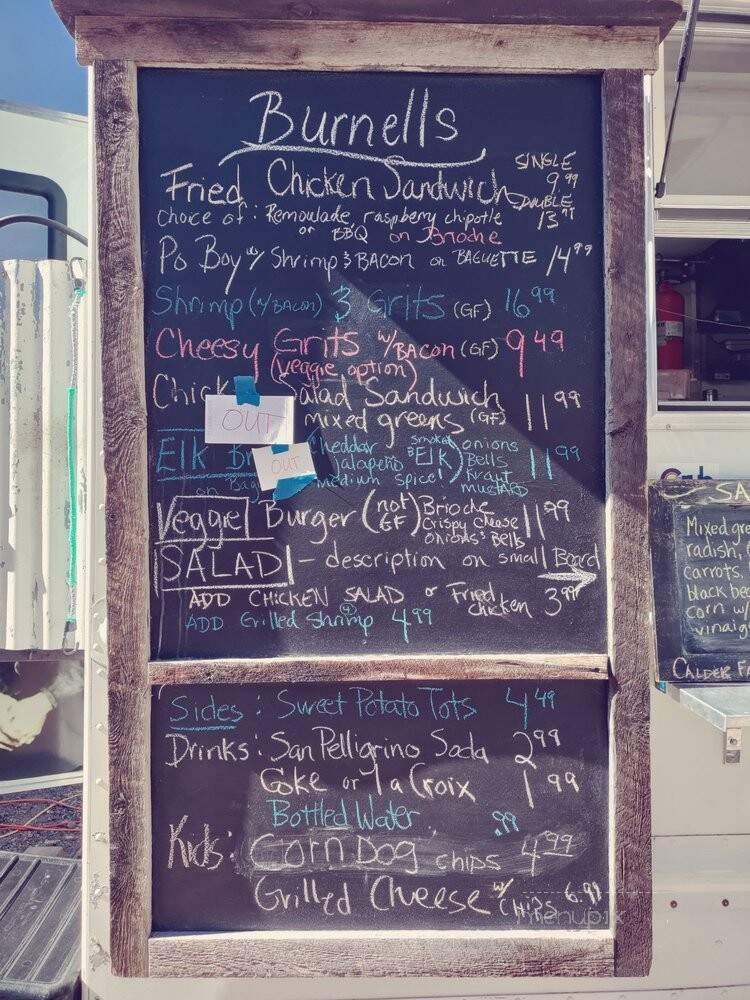 Burnells
Fried Chicken Sandwich SINGLE 9.99
DOUBLE 13
choice of: Remoulade, raspberry chipotle
or BBQ on Brioche
Po Boy w/ Shrimp & BACON on BAGUETTE 14.99
Shrimp (w/ BACON) & Grits (GF) 16.99
Cheesy Grits w/ BACON (GF) 9.49
(veggie option)
Salad Sandwich
mixed greens (GF) 11.99
OUT
Elk cheddar smoked onions
jalapeno ELK) Bells 11.99
OUT
on medium spice Kraut
mustard
Veggie Burger (not GF) Brioche 11.99
Crispy cheese
onions & Bells
SALAD - description on small Board
ADD CHICKEN SALAD or Fried chicken 3.99
ADD Grilled Shrimp (4) 4.99
Sides: Sweet Potato Tots 4.49
Drinks: San Pelligrino Soda 2.99
Coke or La Croix 1.99
Bottled Water .99
Kids: Corn Dog chips 4.99
Grilled Cheese w/ chips 6.99
menupix
SA
Mixed gre
radish,
carrots,
black bea
corn w/
vinaig
CALDER FA